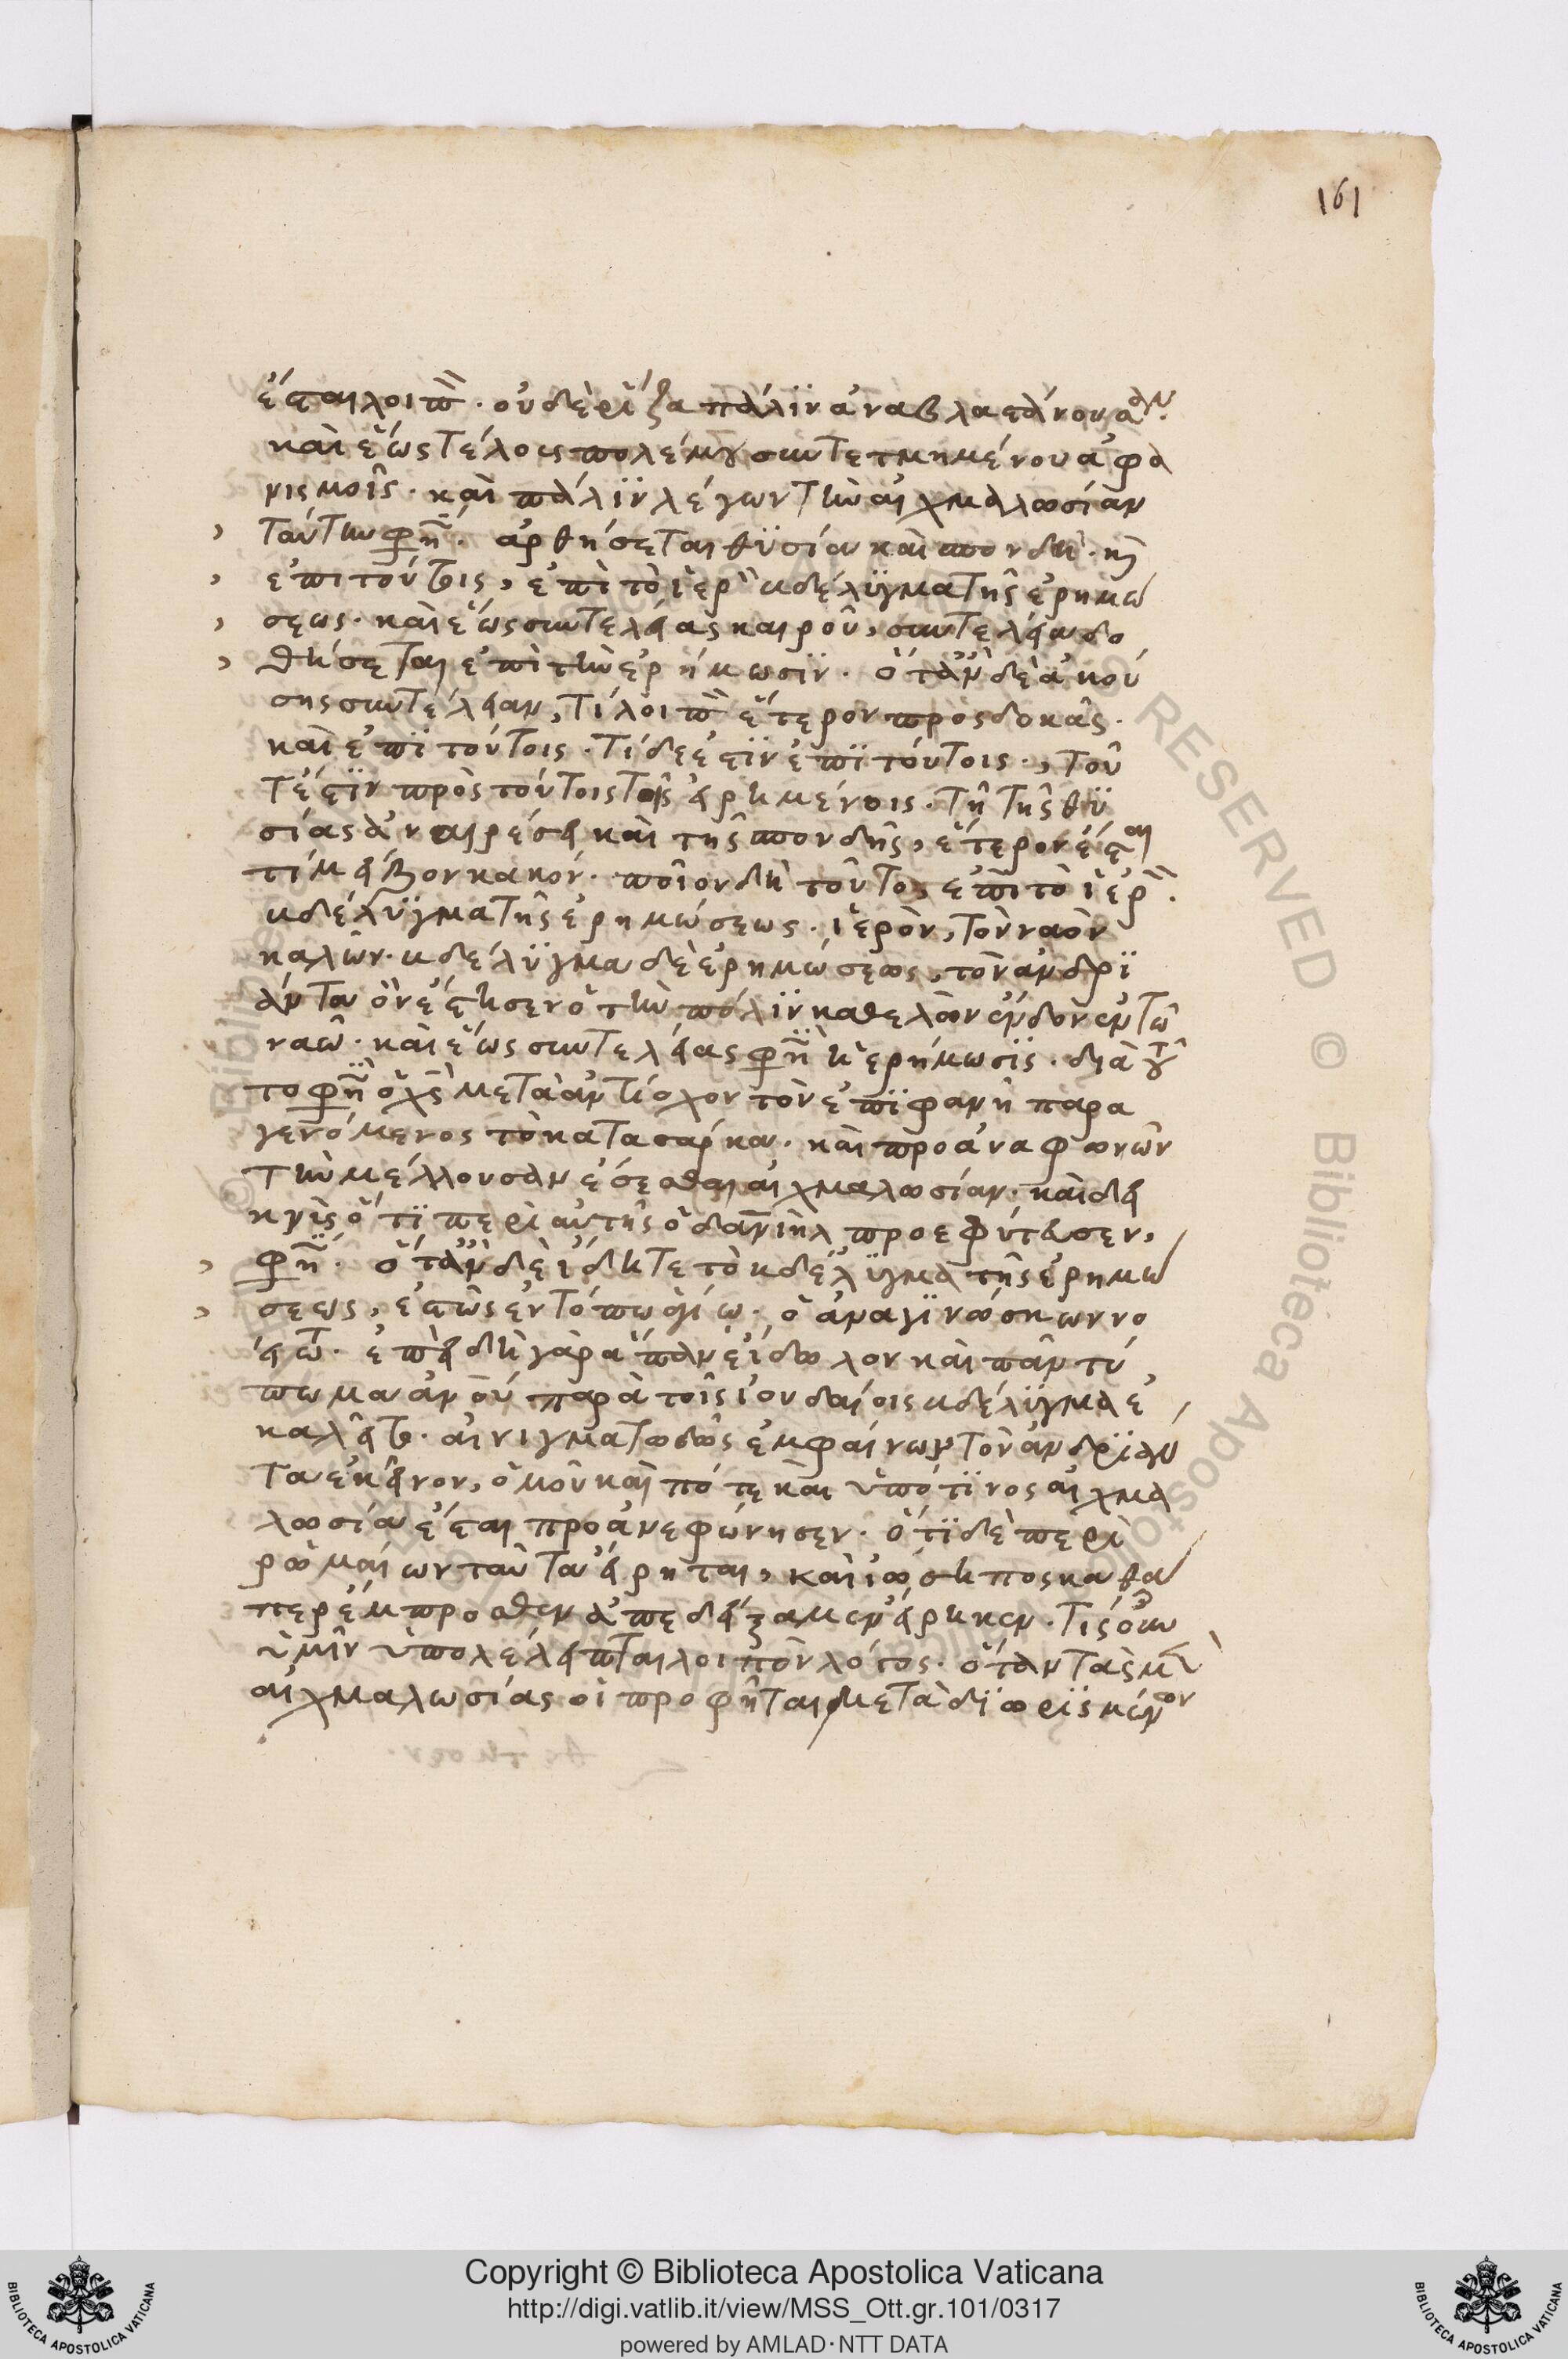 161
ἔσται λοιπὸν. οὐδὲ ῥίζα πάλιν ἀναβλαστάνουσα.
καὶ ἕως τέλους πολέμου συντετμημένου ἀφα
νισμοῖς. καὶ πάλιν λέγων τὴν αἰχμαλωσίαν
ταύτην φησίν. ἀρθήσεται θυσία καὶ σπονδή. καὶ
ἐπι τούτοις, ἐπὶ τὸ ἱερὸν βδέλυγμα τῆς ἐρημώ
σεως. καὶ ἕως συντελείας καιροῦ, συντέλεια δο
θήσεται ἐπὶ τὴν ἐρήμωσιν. ὅταν δὲ ἀκού
σης συντέλειαν, τί λοιπὸν ἕτερον προσδοκᾶς.
καὶ ἐπὶ τούτοις. τί δέ ἐστιν ἐπὶ τούτοις., τοῦ
τέστιν πρὸς τούτοις τοῖς εἰρημένοις. τῇ τῆς θυ
σίας ἀναιρέσει καὶ τῆς σπονδῆς, ἕτερον ἔσται
τί μεῖζον κακόν. ποῖον δὴ τοῦτο; ἐπὶ τὸ ἱερὸν.
βδέλυγμα τῆς ἐρημώσεως. ἱερὸν, τὸν ναὸν
καλῶν. βδέλυγμα δὲ ἐρημώσεως, τὸν ἀνδρι
άντα ὃν ἔστησεν ὁ τὴν πόλιν καθελὼν ἔνδον ἐν τῷ
ναῷ. καὶ ἕως συντελείας φησὶν ἡ ἐρήμωσις. διὰ τοῦ
το φησὶν ὁ χς μετὰ ἀντίοχον τὸν ἐπιφανῆ παρα
γενόμενος τὸ κατα σάρκα. καὶ προαναφωνῶν
τὴν μέλλουσαν ἔσεσθαι αἰχμαλωσίαν. καὶ δει
κνὺς ὅτι περὶ αὐτῆς ὁ δανιὴλ προεφήτευσεν,
φησίν. ὅταν δὲ ἴδητε τὸ βδέλυγμα τῆς ἐρημώ
σεως, ἑστὼς ἐν τόπω ἁγίω. ὁ ἀναγινώσκων νο
είτω. ἐπειδὴ γὰρ ἅπαν εἴδωλον καὶ πᾶν τύ
πωμα ἀνοῦ παρὰ τοῖς ἰουδαίοις βδέλυγμα ἐ
καλεῖτο. αἰνιγματωδῶς ἐμφαίνων τὸν ἀνδριάν
τα ἐκεῖνον, ὁμοῦ καὶ πότε καὶ ὑπὸ τίνος αἰχμα
λωσία ἔσται προανεφώνησεν. ὅτι δὲ περὶ
ῥωμαίων ταῦτα εἴρηται, καὶ ἰώσηπος καθὰ
περ ἔμπροσθεν ἀπεδείξαμεν εἴρηκεν. τίς οὖν
ὑμῖν ὑπολέλειπται λοιπὸν λόγος. ὅταν τὰς μὲν
αἰχμαλωσίας οἱ προφῆται μετὰ διωρισμένον
Copyright © Biblioteca Apostolica Vaticana
http://digi.vatlib.it/view/MSS_Ott.gr.101/0317
powered by AMLAD·NTT DATA